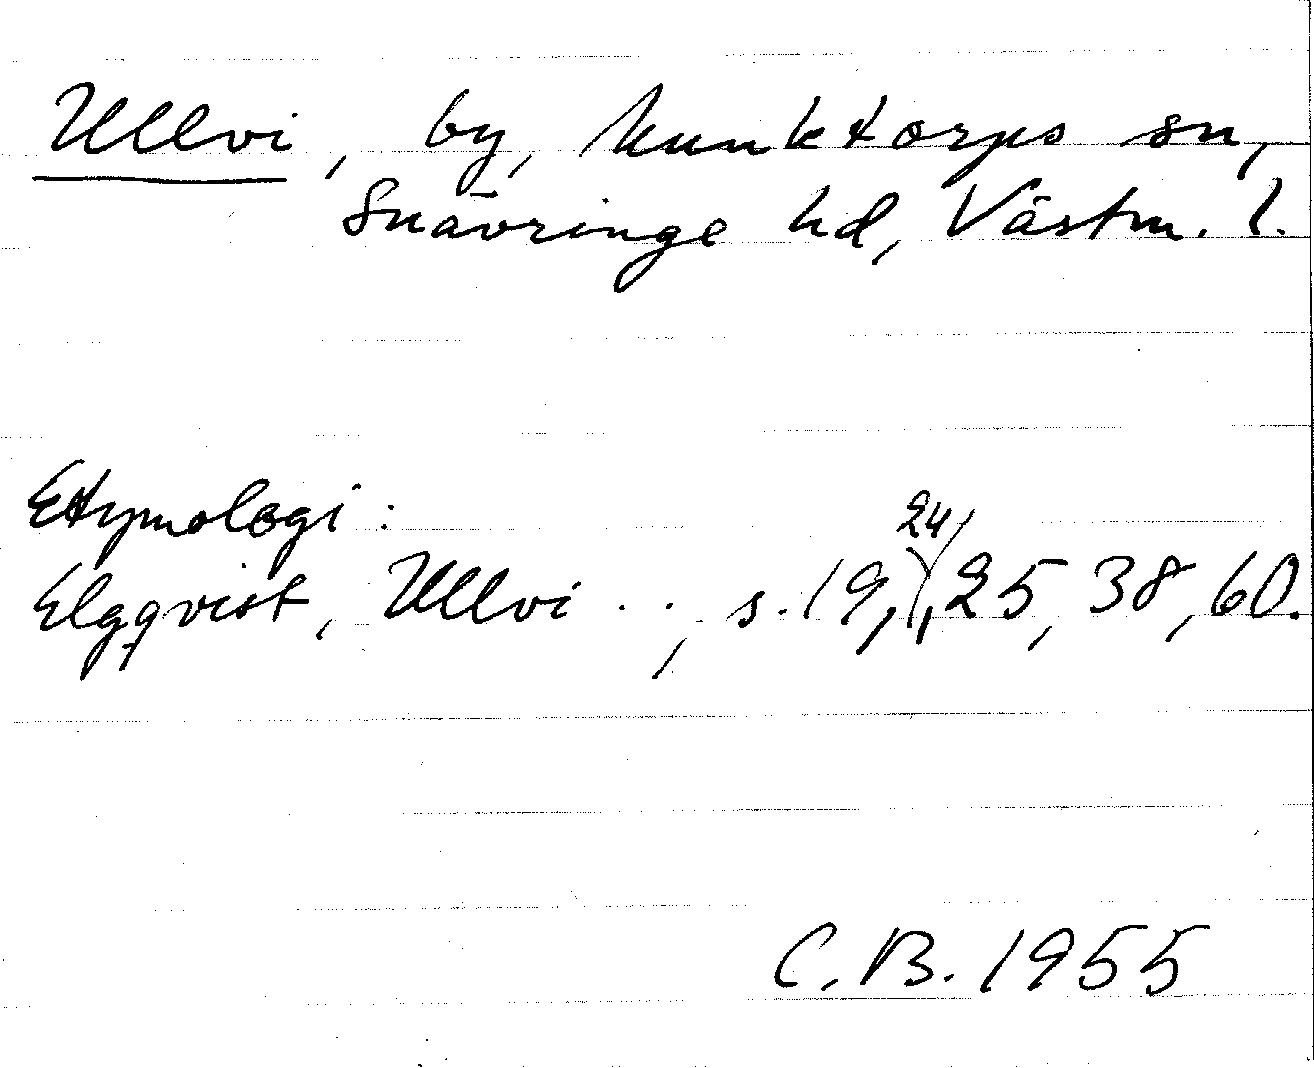 Ullvi, by, Munktorps sn,
Snävringe hd, Västm. l.
Etymologi:
Elgqvist, Ullvi . ., s. 19, 24, 25, 38, 60.
C. B. 1955